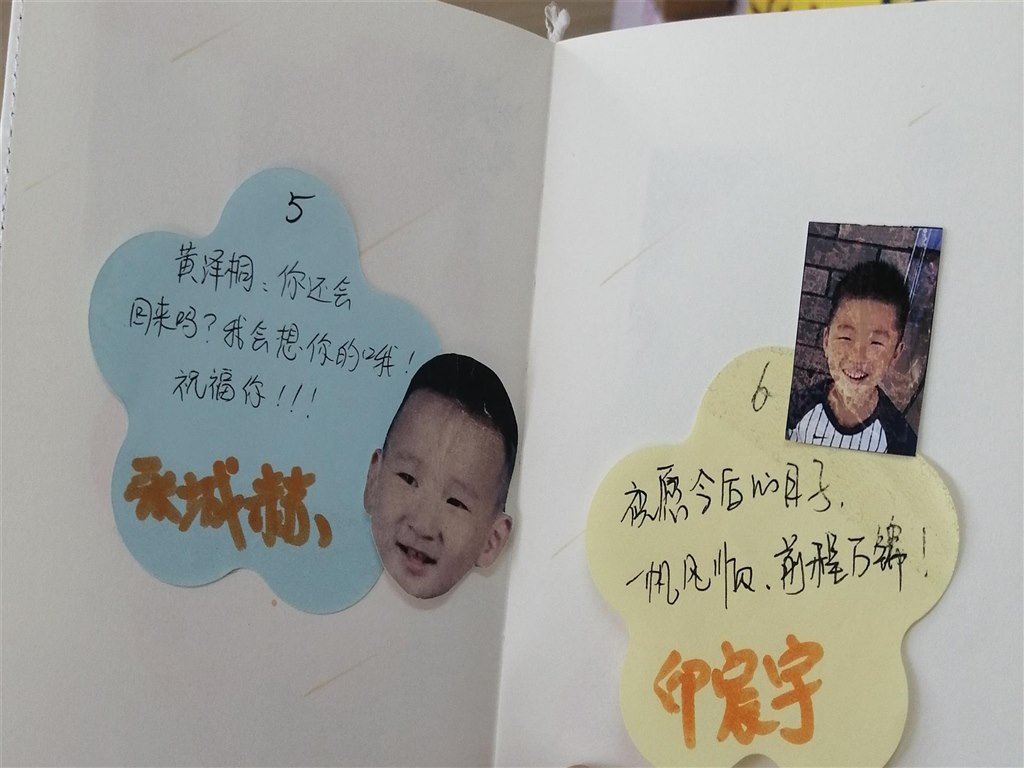 5
黄泽桐：你还会
回来吗？我会想你的哦！
祝福你！！！
张城赫
6
祝愿今后的日子，
一帆风顺、前程万锦！
印宸宇